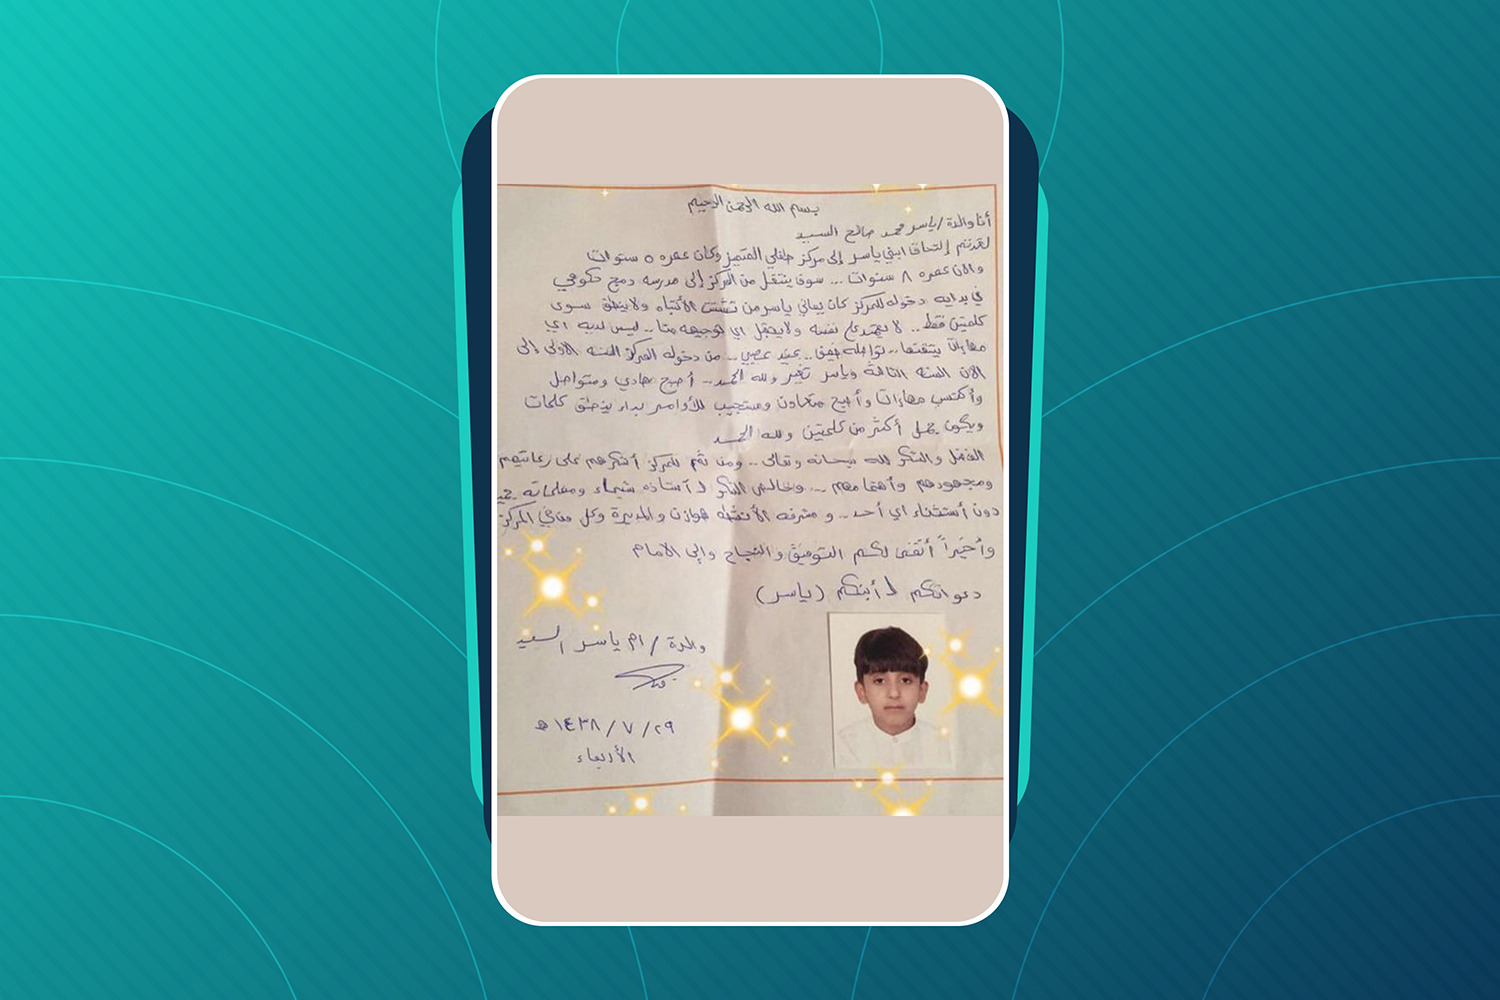 بسم الله الرحمن الرحيم
أنا والدة / ياسر محمد صالح السيد
لقد تم إلتحاق ابني ياسر إلى مركز طفلي المتميز وكان عمره ٥ سنوات
والان عمره ٨ سنوات ... سوف ينتقل من المركز إلى مدرسه دمج حكومي
في بدايه دخوله للمركز كان يعاني ياسر من تشتت الأنتباه ولاينطق سوى
كلمتين فقط .. لا يعتمد على نفسه ولايتقبل اي توجيه منا .. ليس لديه اي
مهارات يتقنها .. تواصله ضعيف .. عنيد عصبي .. من دخوله المركز السنه الاولى إلى
الآن السنه الثالثة وياسر تغير ولله الحمد .. أصبح هادي ومتواصل
وأكتسب مهارات وأصبح متعاون ومستجيب للأوامر بداء ينطق كلمات
ويكون جمل أكثر من كلمتين ولله الحمد
الفضل والشكر لله سبحانه وتعالى .. ومن ثم للمركز أشكرهم على رعايتهم
ومجهودهم وأهتمامهم ... وخالص الشكر لـ أستاذه شيماء ومعلماته
دون أستثناء اي أحد .. و مشرفه الأنشطه هوازن والمديرة وكل من في المركز
وأخيراً أتمنى لكم التوفيق والنجاح وإلى الامام
دعواتكم لـ أبنكم (ياسر)
والدة / ام ياسر السيد
٢٩ / ٧ / ١٤٣٨ هـ
الأربعاء